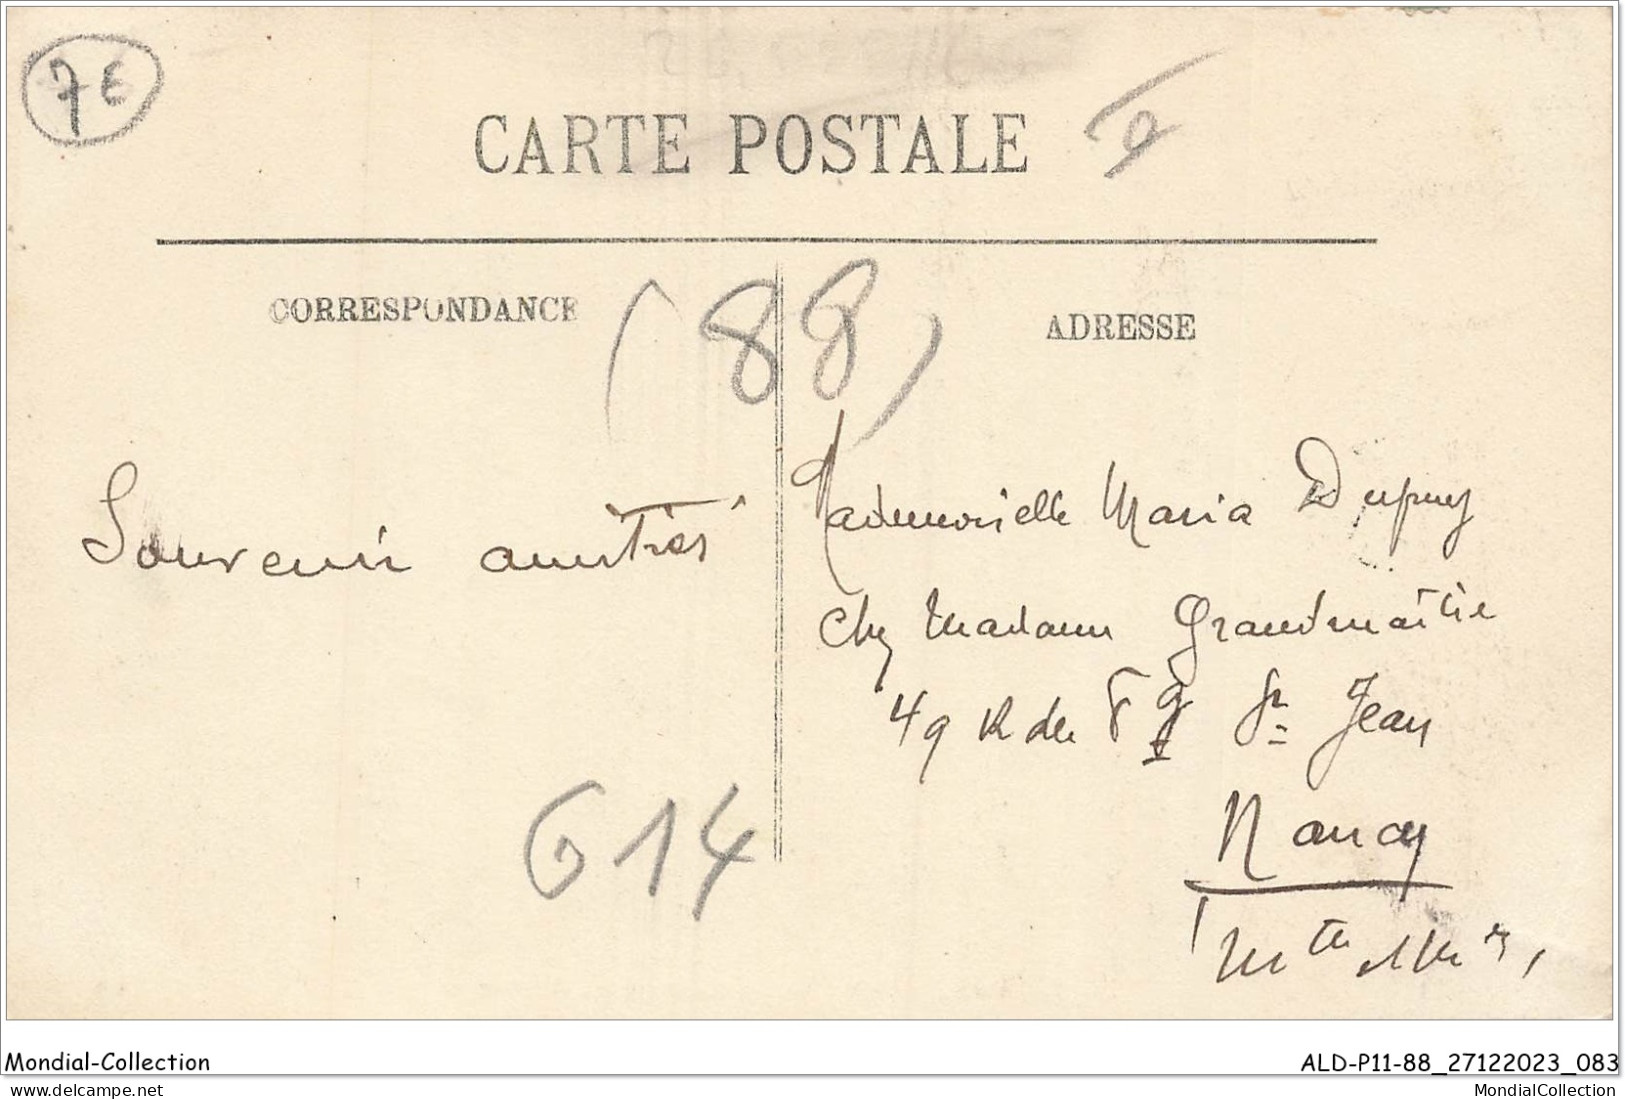 7€
CARTE POSTALE
CORRESPONDANCE
(88)
ADRESSE
Souvenir amitiés
Mademoiselle Maria Dupuy
Chez Madame Grandmaître
49 R du Fg St Jean
Nancy
Mthe Mlle
G14
Mondial-Collection
ALD-P11-88_27122023_083
www.delcampe.net
MondialCollection